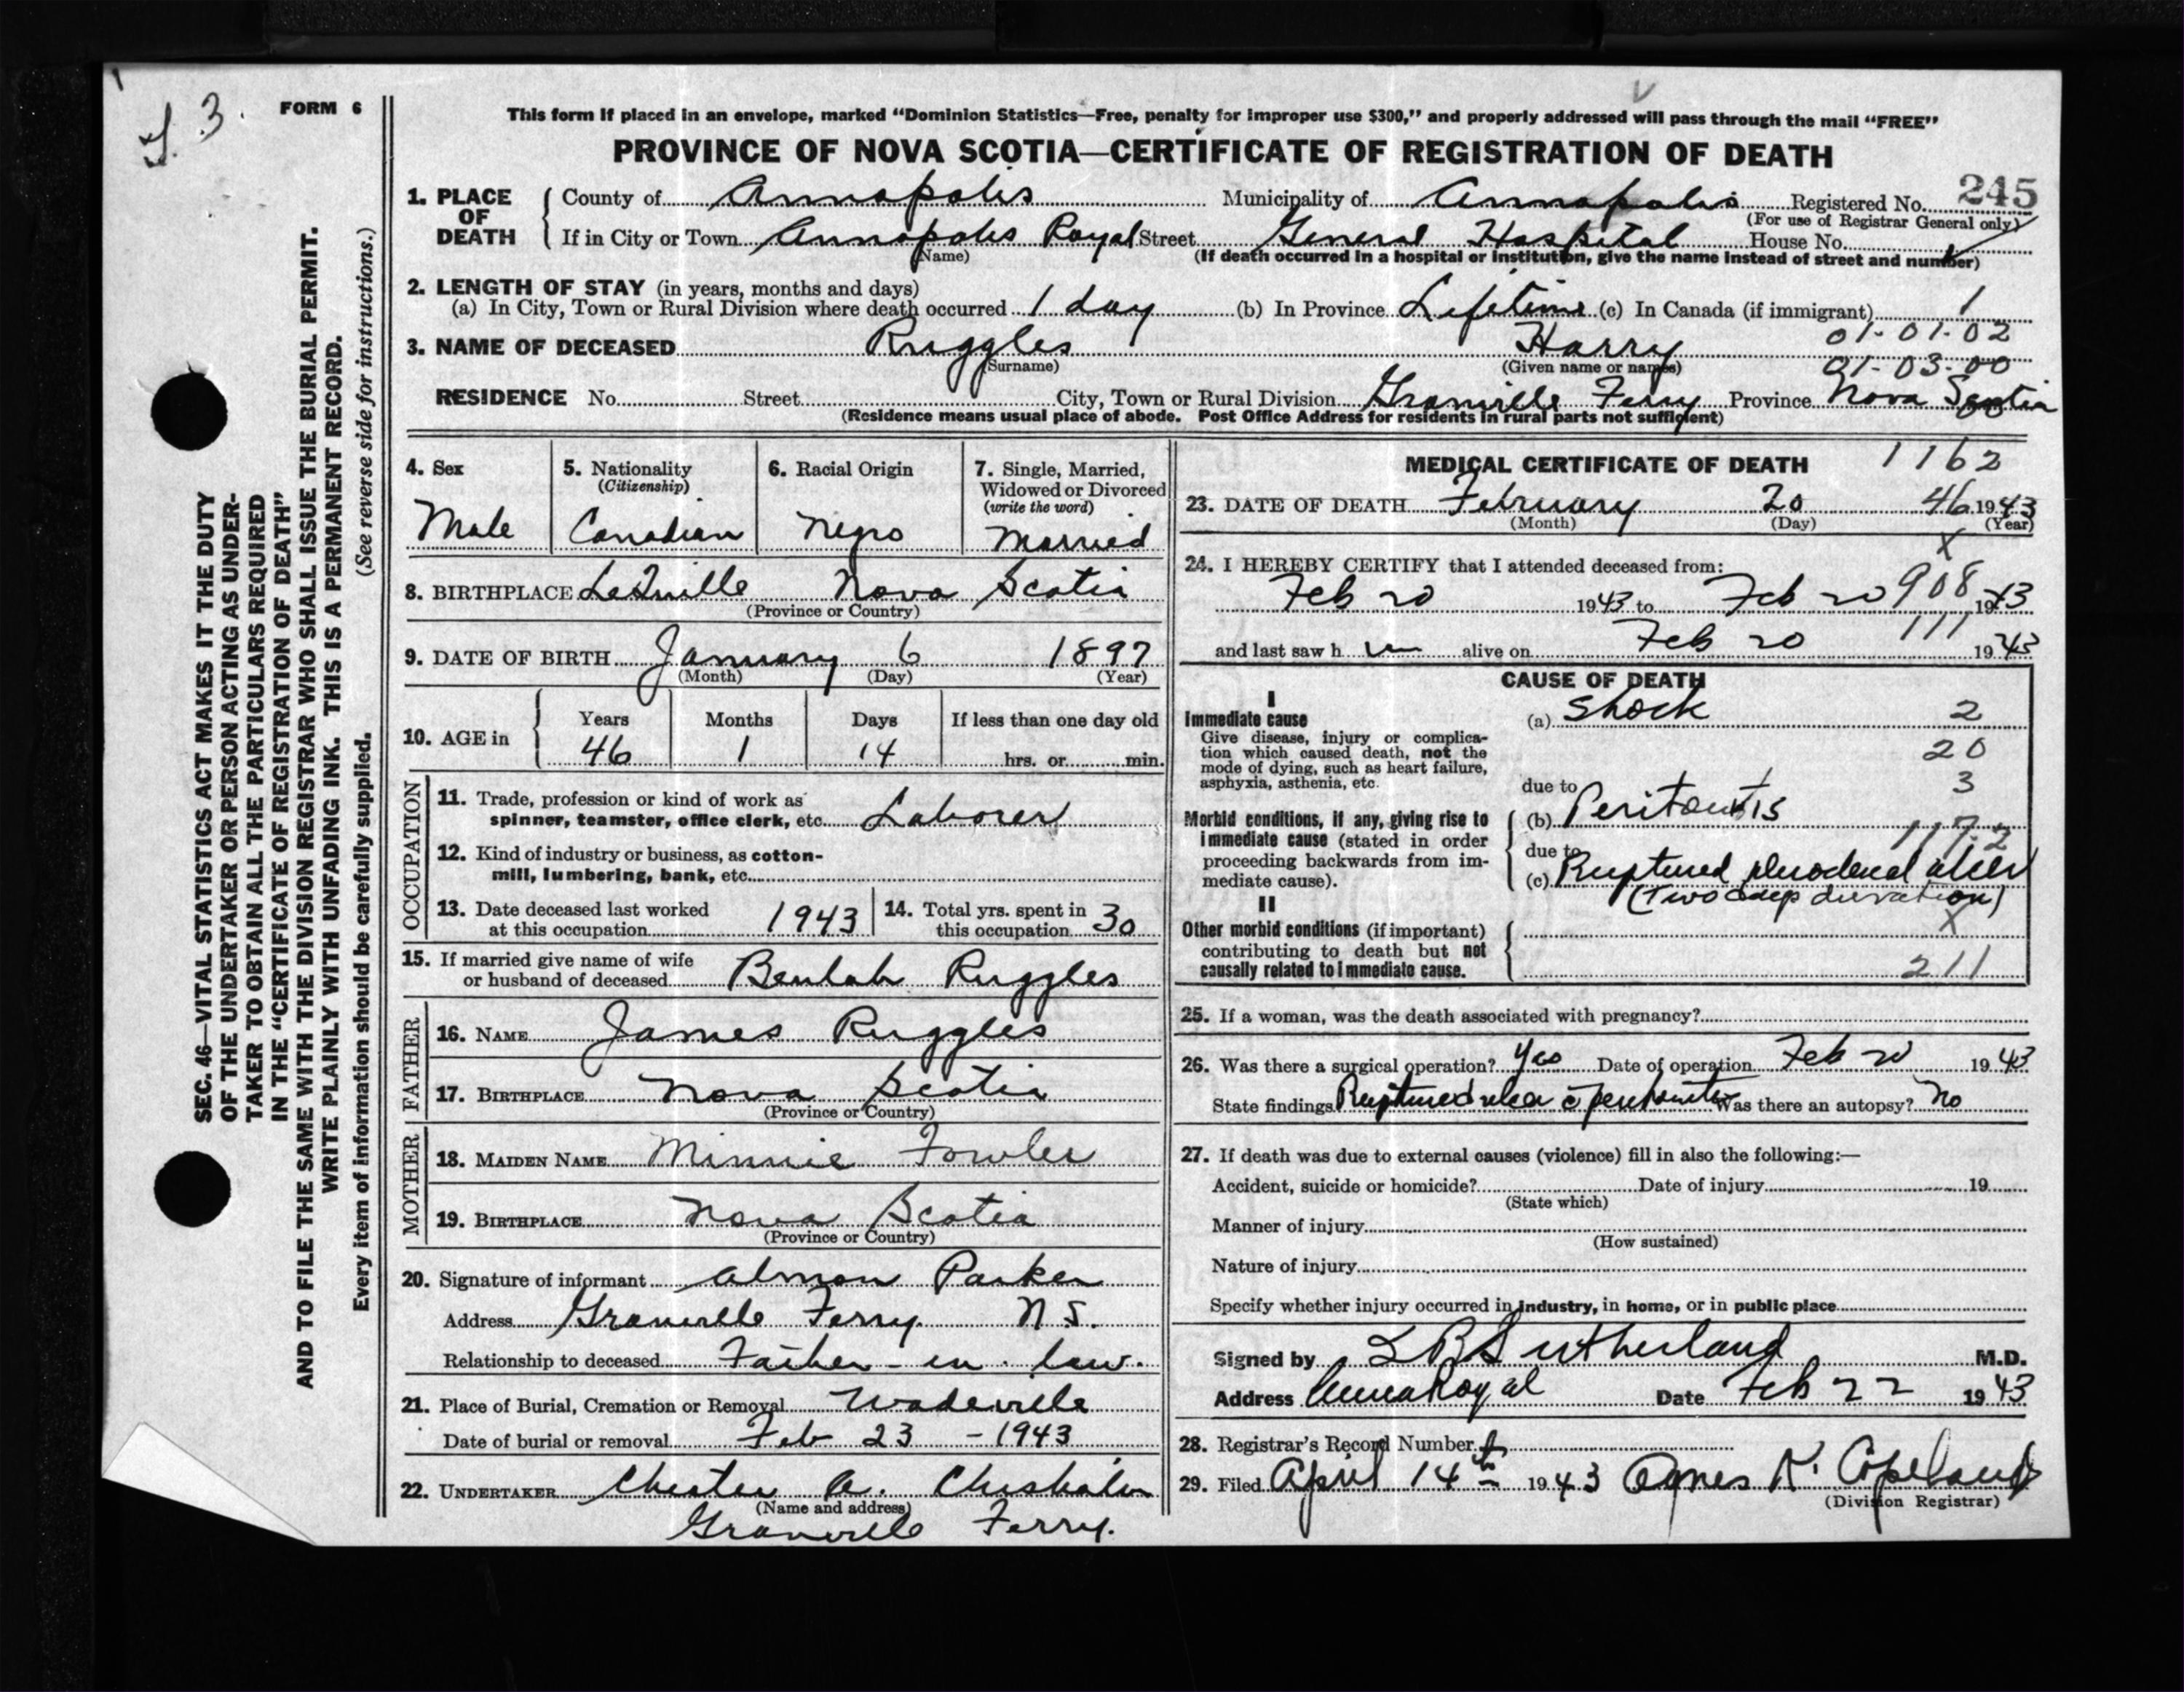 FORM 6
This form if placed in an envelope, marked "Dominion Statistics—Free, penalty for improper use $300," and properly addressed will pass through the mail "FREE"
PROVINCE OF NOVA SCOTIA—CERTIFICATE OF REGISTRATION OF DEATH
SEC. 46—VITAL STATISTICS ACT MAKES IT THE DUTY
OF THE UNDERTAKER OR PERSON ACTING AS UNDER-
TAKER TO OBTAIN ALL THE PARTICULARS REQUIRED
IN THE "CERTIFICATE OF REGISTRATION OF DEATH"
AND TO FILE THE SAME WITH THE DIVISION REGISTRAR WHO SHALL ISSUE THE BURIAL PERMIT.
WRITE PLAINLY WITH UNFADING INK. THIS IS A PERMANENT RECORD.
Every item of information should be carefully supplied. (See reverse side for instructions.)
1. PLACE OF DEATH County of Annapolis Municipality of Annapolis Registered No. 245
(For use of Registrar General only)
If in City or Town Annapolis Royal Street General Hospital House No.
(Name) (If death occurred in a hospital or institution, give the name instead of street and number)
2. LENGTH OF STAY (in years, months and days)
(a) In City, Town or Rural Division where death occurred 1 day (b) In Province Lifetime (c) In Canada (if immigrant) 1
01-01-02
3. NAME OF DECEASED Ruggles Harry
(Surname) (Given name or names) 01-03-00
RESIDENCE No. Street City, Town or Rural Division Granville Ferry Province Nova Scotia
(Residence means usual place of abode. Post Office Address for residents in rural parts not sufficient)
4. Sex 5. Nationality (Citizenship) 6. Racial Origin 7. Single, Married, Widowed or Divorced (write the word)
Male Canadian Negro Married
8. BIRTHPLACE LeQuille Nova Scotia
(Province or Country)
9. DATE OF BIRTH January 6 1897
(Month) (Day) (Year)
10. AGE in Years Months Days If less than one day old
46 1 14 hrs. or min.
OCCUPATION
11. Trade, profession or kind of work as
spinner, teamster, office clerk, etc. Laborer
12. Kind of industry or business, as cotton-
mill, lumbering, bank, etc.
13. Date deceased last worked
at this occupation 1943
14. Total yrs. spent in
this occupation 30
15. If married give name of wife
or husband of deceased Beulah Ruggles
FATHER
16. NAME James Ruggles
17. BIRTHPLACE Nova Scotia
(Province or Country)
MOTHER
18. MAIDEN NAME Minnie Fowler
19. BIRTHPLACE Nova Scotia
(Province or Country)
20. Signature of informant Almon Parker
Address Granville Ferry. N S.
Relationship to deceased Father-in-law.
21. Place of Burial, Cremation or Removal Wadeville
Date of burial or removal Feb 23 - 1943
22. UNDERTAKER Chester A. Chisholm
(Name and address)
Granville Ferry.
MEDICAL CERTIFICATE OF DEATH 1162
23. DATE OF DEATH February 20 46 1943
(Month) (Day) (Year)
x
24. I HEREBY CERTIFY that I attended deceased from:
Feb 20 1943 to Feb 20 908 1943
111
and last saw h im alive on Feb 20 1943
CAUSE OF DEATH
I
Immediate cause
Give disease, injury or complica-
tion which caused death, not the
mode of dying, such as heart failure,
asphyxia, asthenia, etc.
(a) Shock 2
20
due to 3
Morbid conditions, if any, giving rise to
immediate cause (stated in order
proceeding backwards from im-
mediate cause).
(b) Peritonitis
117.2
due to
(c) Ruptured duodenal ulcer
(Two days duration)
II
Other morbid conditions (if important)
contributing to death but not
causally related to immediate cause.
x
211
25. If a woman, was the death associated with pregnancy?
26. Was there a surgical operation? Yes Date of operation Feb 20 1943
State findings Ruptured ulcer c̄ peritonitis Was there an autopsy? No
27. If death was due to external causes (violence) fill in also the following:—
Accident, suicide or homicide? Date of injury 19
(State which)
Manner of injury
(How sustained)
Nature of injury
Specify whether injury occurred in industry, in home, or in public place
Signed by L B Sutherland M.D.
Address Anna Royal Date Feb 22 1943
28. Registrar's Record Number
29. Filed April 14th 1943 Agnes K. Copeland
(Division Registrar)